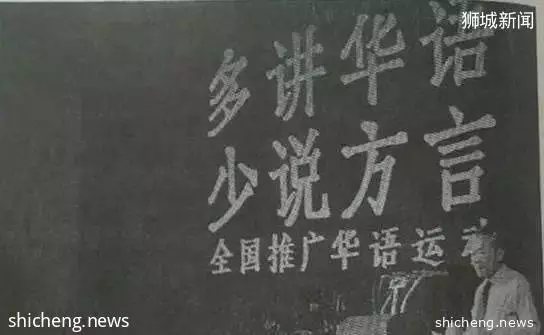 狮城新闻
多讲华语
少说方言
全国推广华语运动
shicheng.news
shicheng.news